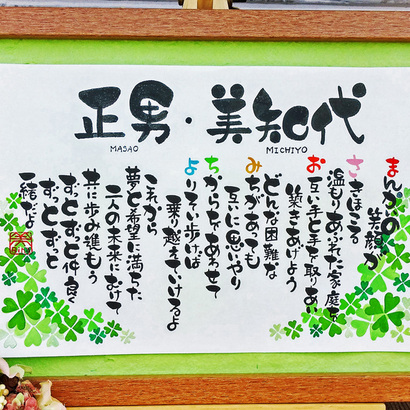 正男・美知代
MASAO
MICHIYO
まんかいの
笑顔が
さきほこる
温もりあふれた家庭を
お互い手と手を取りあい
築きあげよう
どんな困難な
みちがあっても
互いに思いやり
ちからをあわせて
よりそい歩けば
乗り越えていけるよ
これから
夢と希望に満ちた
二人の未来にむけて
共に歩み進もう
ずっとずっと仲良く
ずっとずっと
一緒だよ